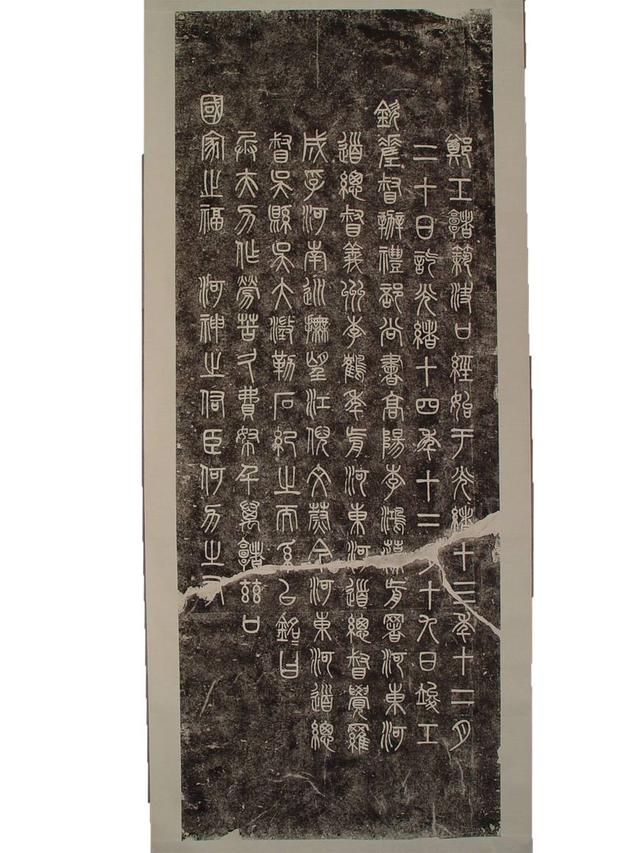 鄭工築決口經始于光緒十三年十二月
二十日訖光緒十四年十二月十九日竣工
欽差督辦禮部尚書高陽李鴻藻前署河東河
道總督義州李鶴年前河東河道總督覺羅
成孚河南巡撫望江倪文蔚今河東河道總
督吳縣吳大澂勒石紀之而系以銘曰
兵夫力作勞苦久費帑千萬茲口
國家之福 河神之佑臣何力之有